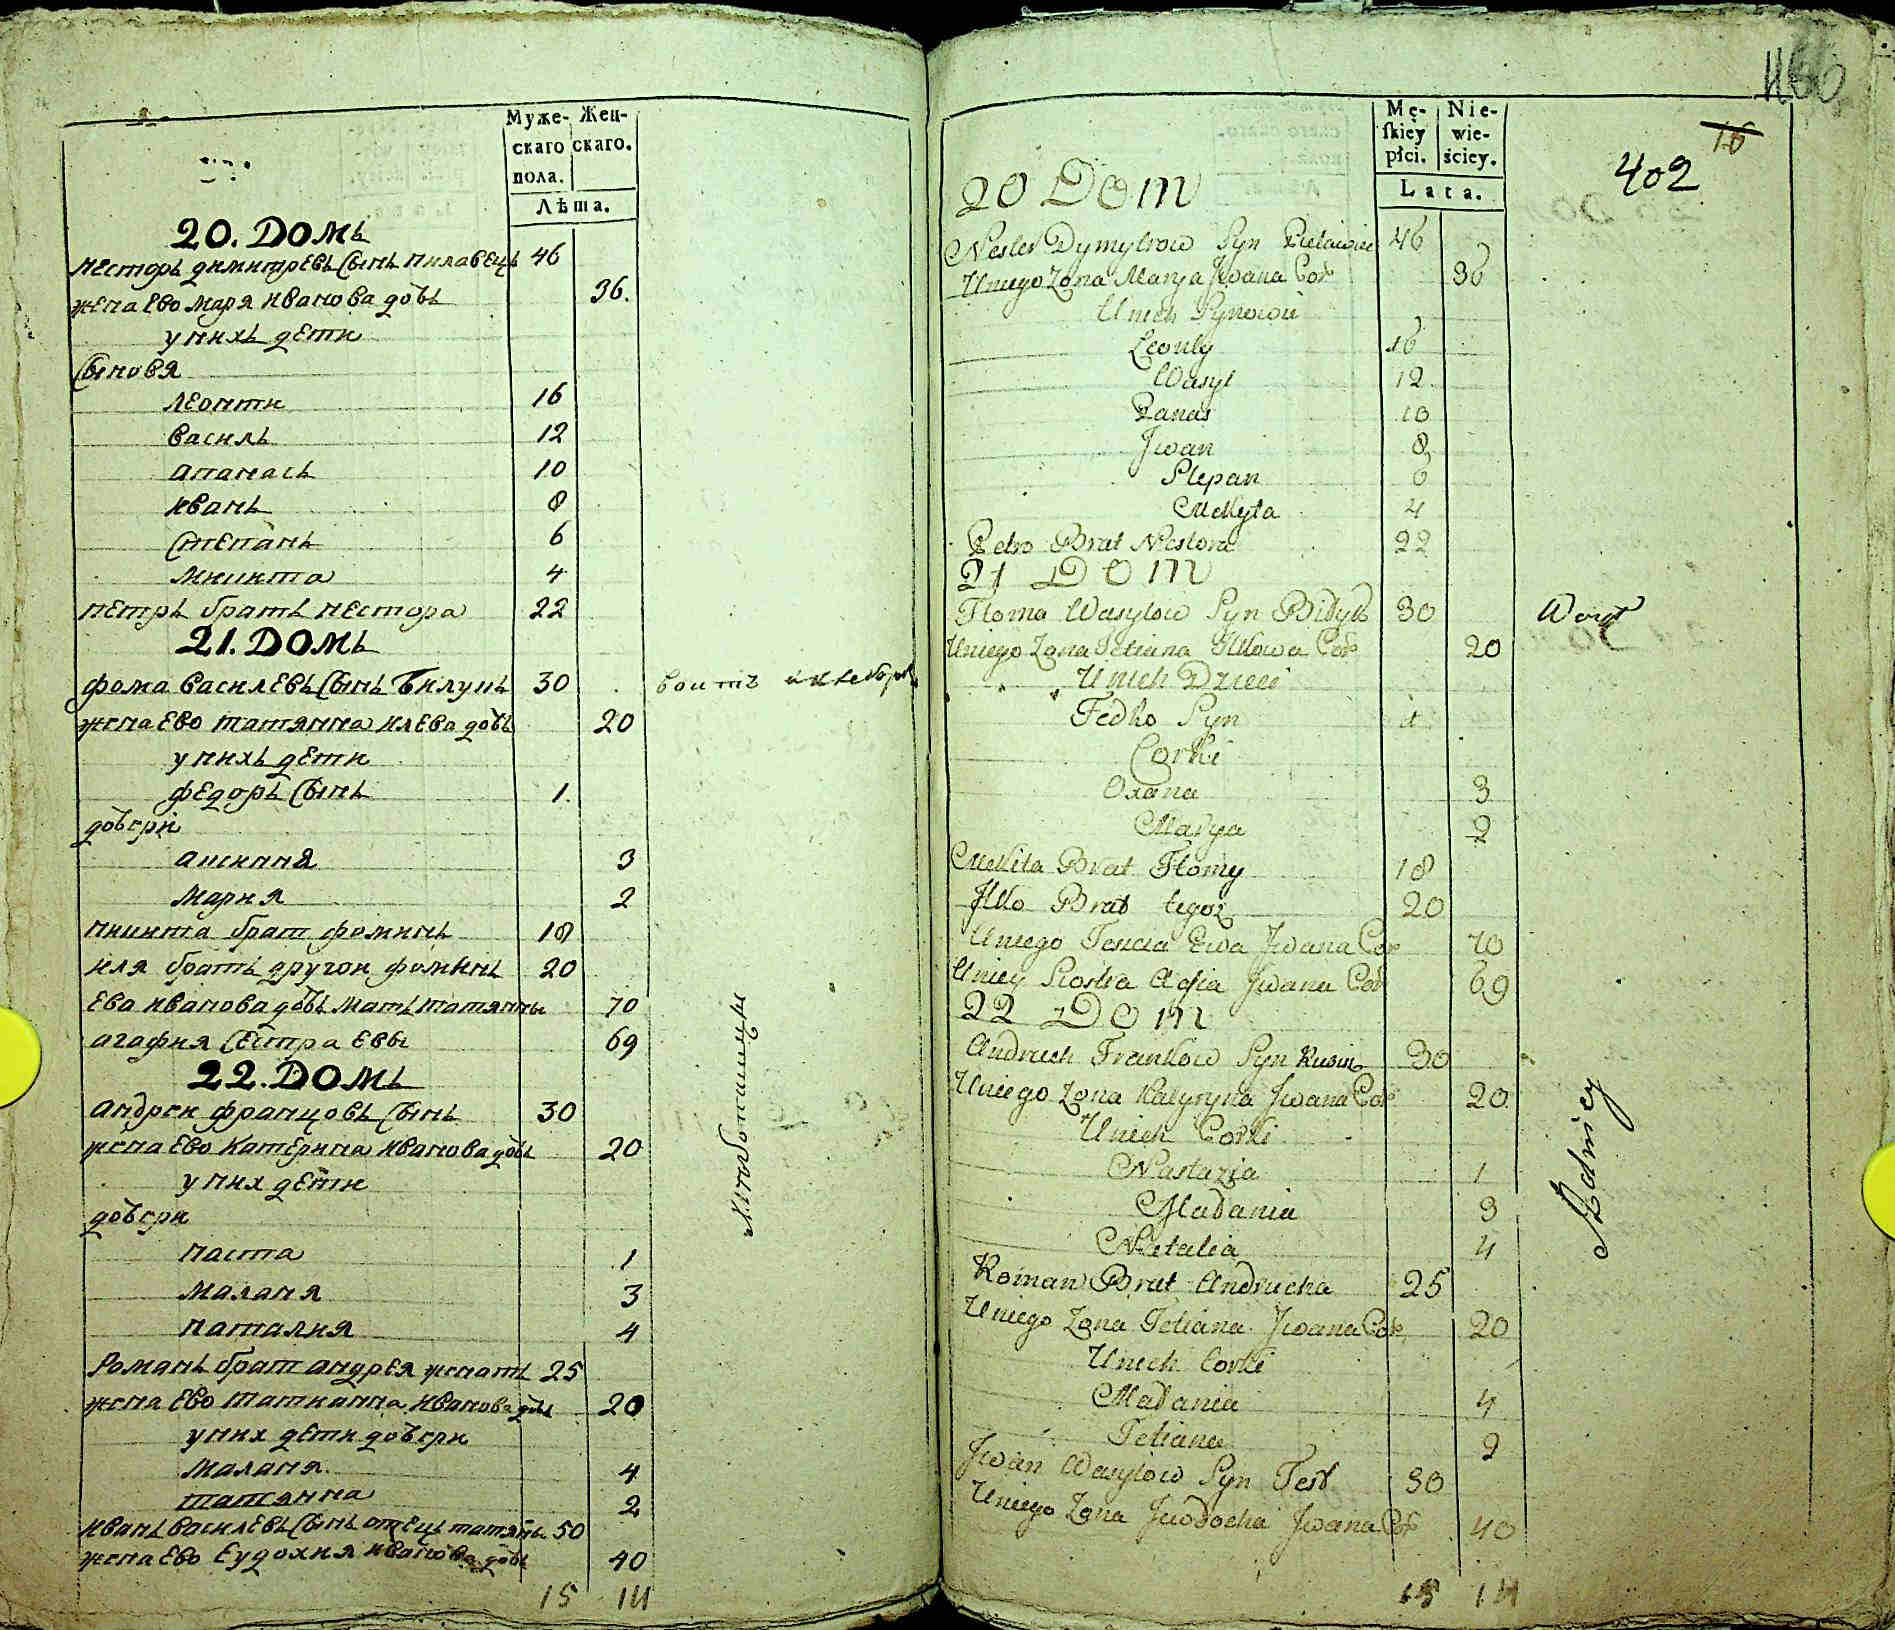 Муже- Жен-
скаго скаго.
пола.
Лѣта.
20. Домъ
несторъ димитревъ сынъ пилавецъ 46
жена ево маря иванова дочь 36.
у нихъ дети
сыновя
леонти 16
василь 12
апанасъ 10
иванъ 8
степанъ 6
микита 4
петръ братъ нестора 22
21. Домъ
фома василевъ сынъ 30 воитъ
жена ево татянна илева дочь 20
у нихъ дети
федоръ сынъ 1.
дочери
аксиння 3
мария 2
никита брат фоминъ 18
иля братъ другои фоминъ 20
ева иванова дочь мать татянны 70
агафия сестра евы 69
22. Домъ
андреи францовъ сынъ 30
жена ево катерина иванова дочь 20
у них дети
дочери
наста 1
маланя 3
наталия 4
романъ брат андрея женатъ 25
жена ево татианна иванова дочь 20
у них дети дочери
маланя 4
татянна 2
иванъ василевъ сынъ отецъ татяны 50
жена ево еудохия иванова дочь 40
15 14
Mę- Nie-
skiey wie-
płci. ściey.
Lata.
16
402
20 Dom
Nester Dymytrow Syn 46
Uniego Zona Marya Jwana Cor 36
Unich Synowie
Leonty 16
Wasyl 12
Panas 10
Jwan 8
Stepan 6
Mekyta 4
Petro Brat Nestora 22
21 Dom
Thoma Wasylow Syn 30 Woyt
Uniego Zona Tetiana Ilkowa Cor 20
Unich Dzieci
Fedko Syn 1
Corki
Oxana 3
Marya 2
Mekita Brat Thomy 18
Ilko Brat tegoz 20
Uniego Tescia Ewa Jwana Cor 70
Uniey Siostra Agia Jwana Cor 69
22 Dom
Andruch Frankow Syn Rusin 30
Uniego Zona Kateryna Jwana Cor 20
Unich Corki
Nastazia 1
Małania 3
Natalia 4
Roman Brat Andrucha 25
Uniego Zona Tetiana Jwana Cor 20
Unich Corki
Małania 4
Tetiana 2
Jwan Wasylow Syn Test 50
Uniego Zona Jwdocha Jwana Cor 40
15 14